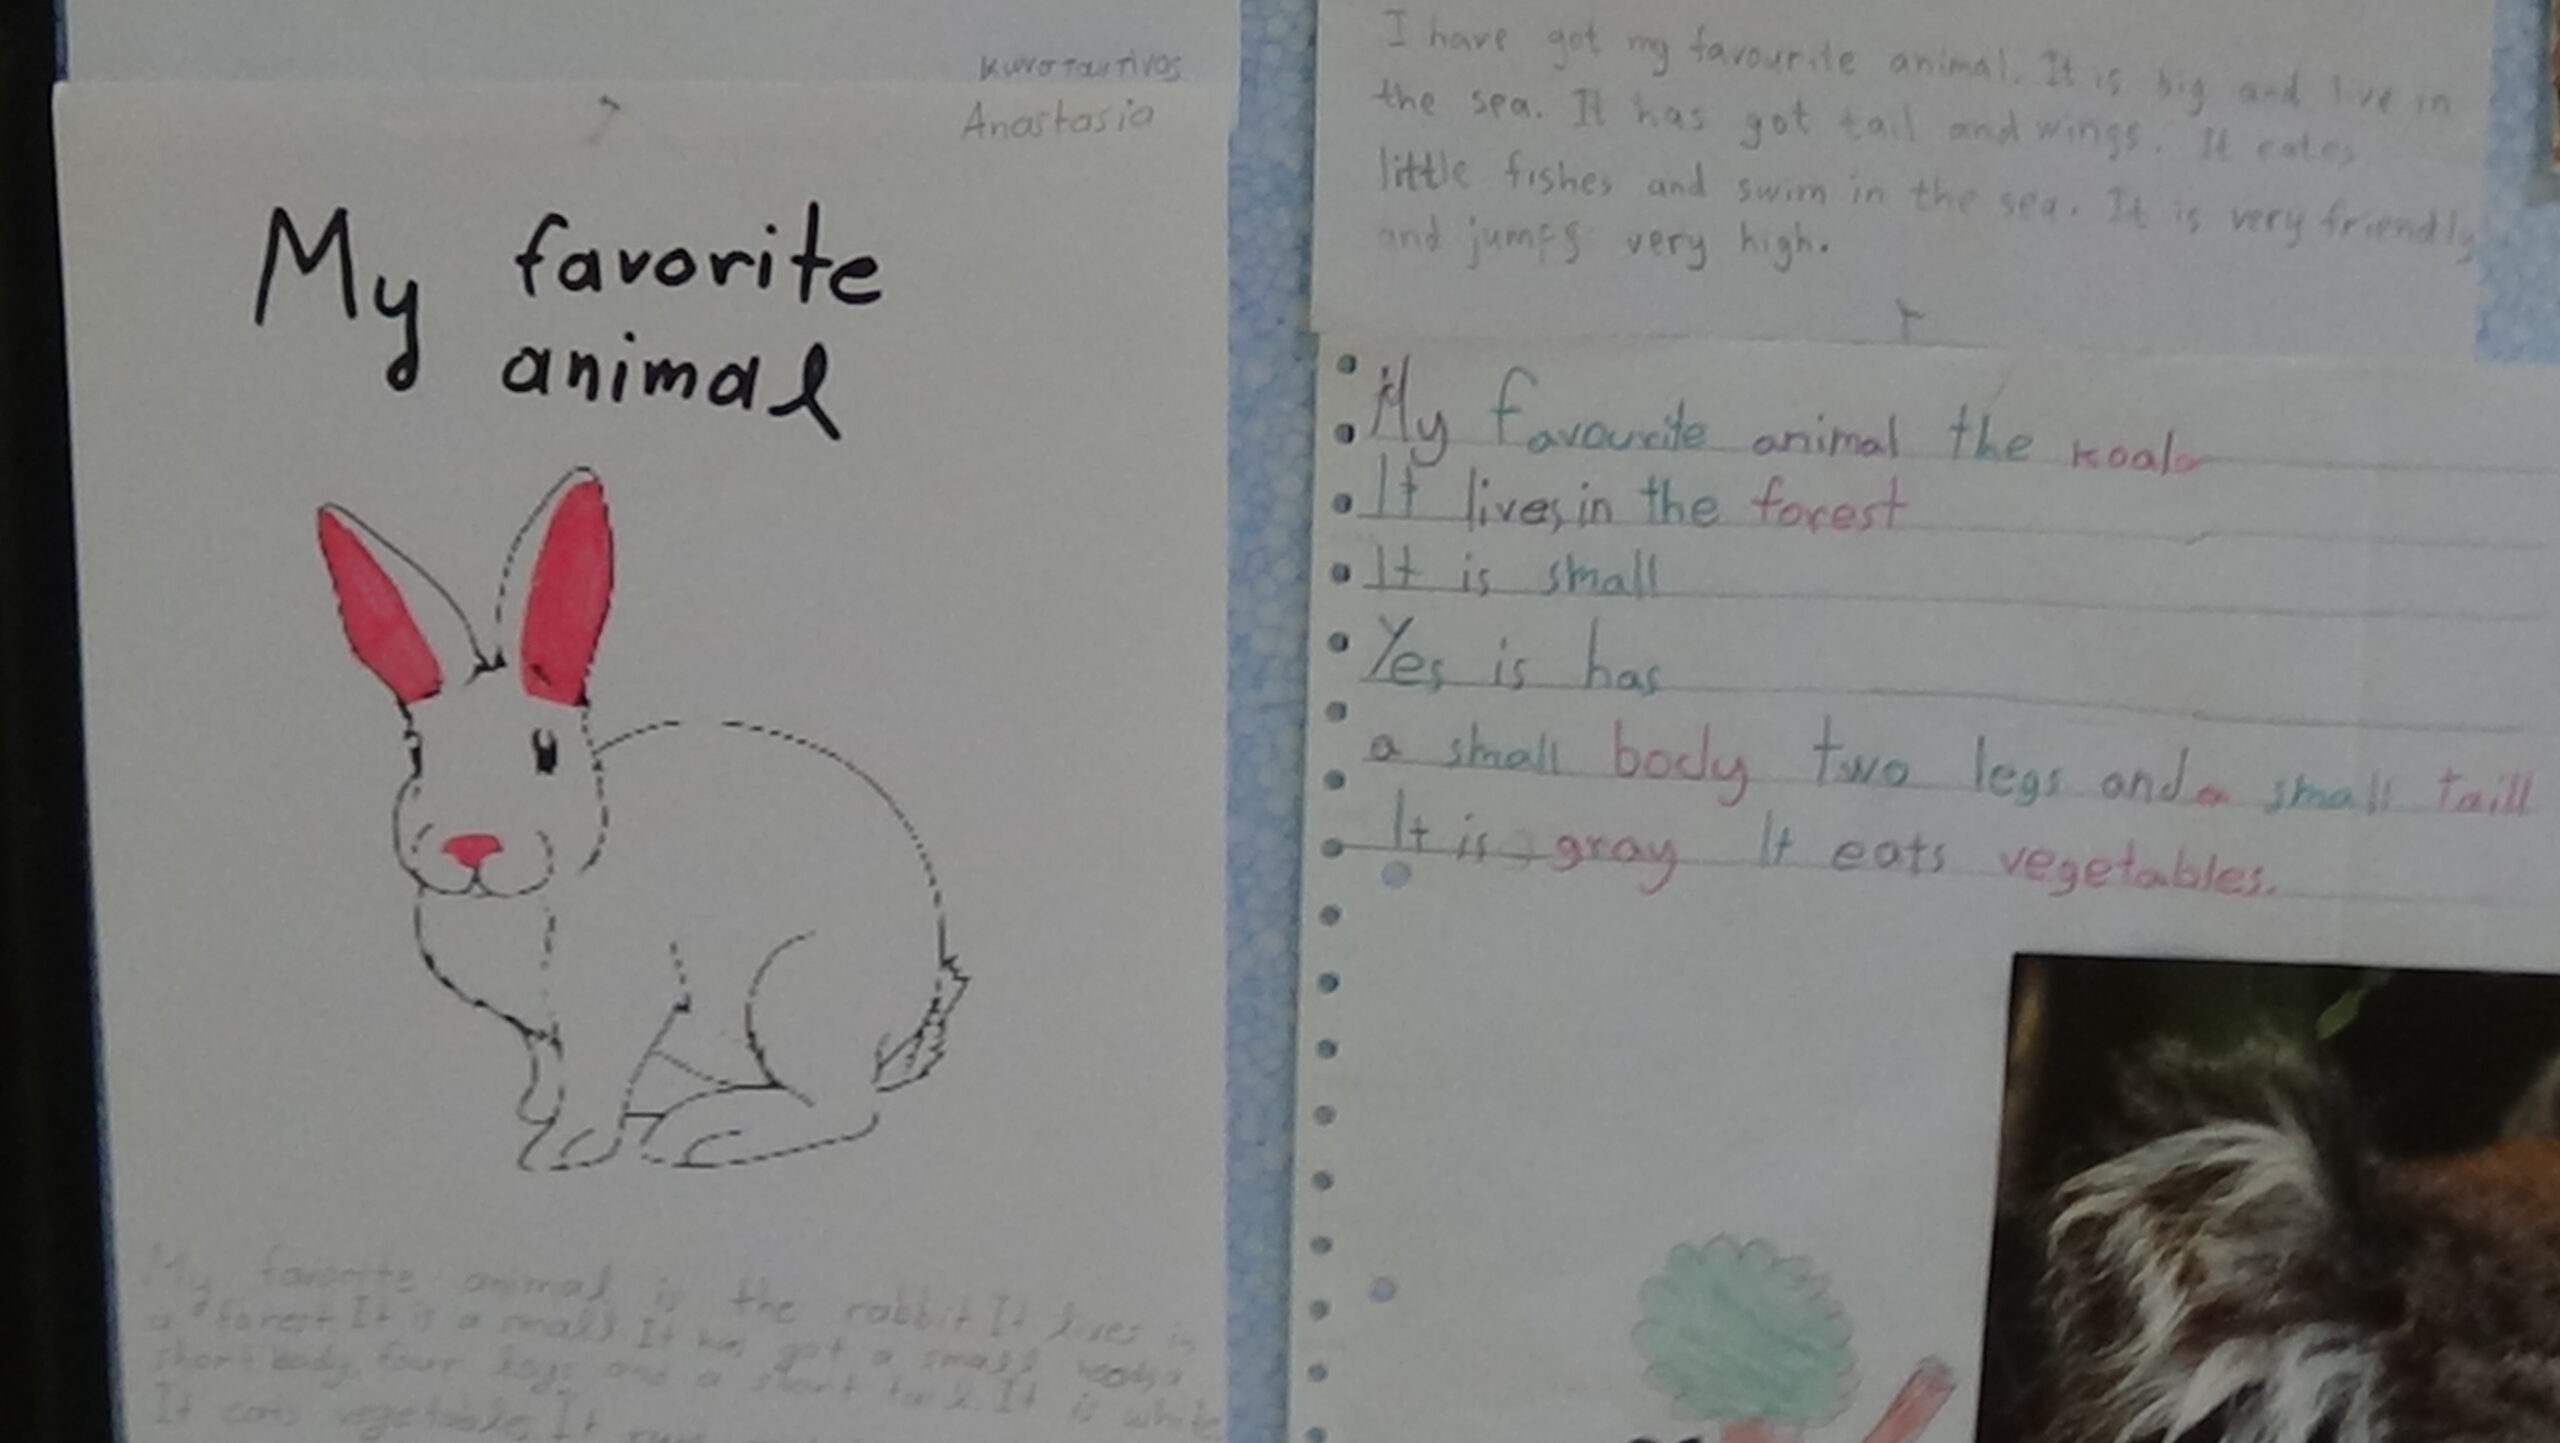 Κωνσταντίνος
Anastasia
My favorite
animal
My favorite animal is the rabbit It lives in
a forest It is a small It has got a small
short body four legs and a short tail It is white
It eats vegetables It
I have got my favourite animal. It is big and live in
the sea. It has got tail and wings. It eates
little fishes and swim in the sea. It is very friendly
and jumps very high.
My favourite animal the koala
It lives in the forest
It is small
Yes is has
a small body two legs and a small taill
It is gray It eats vegetables.